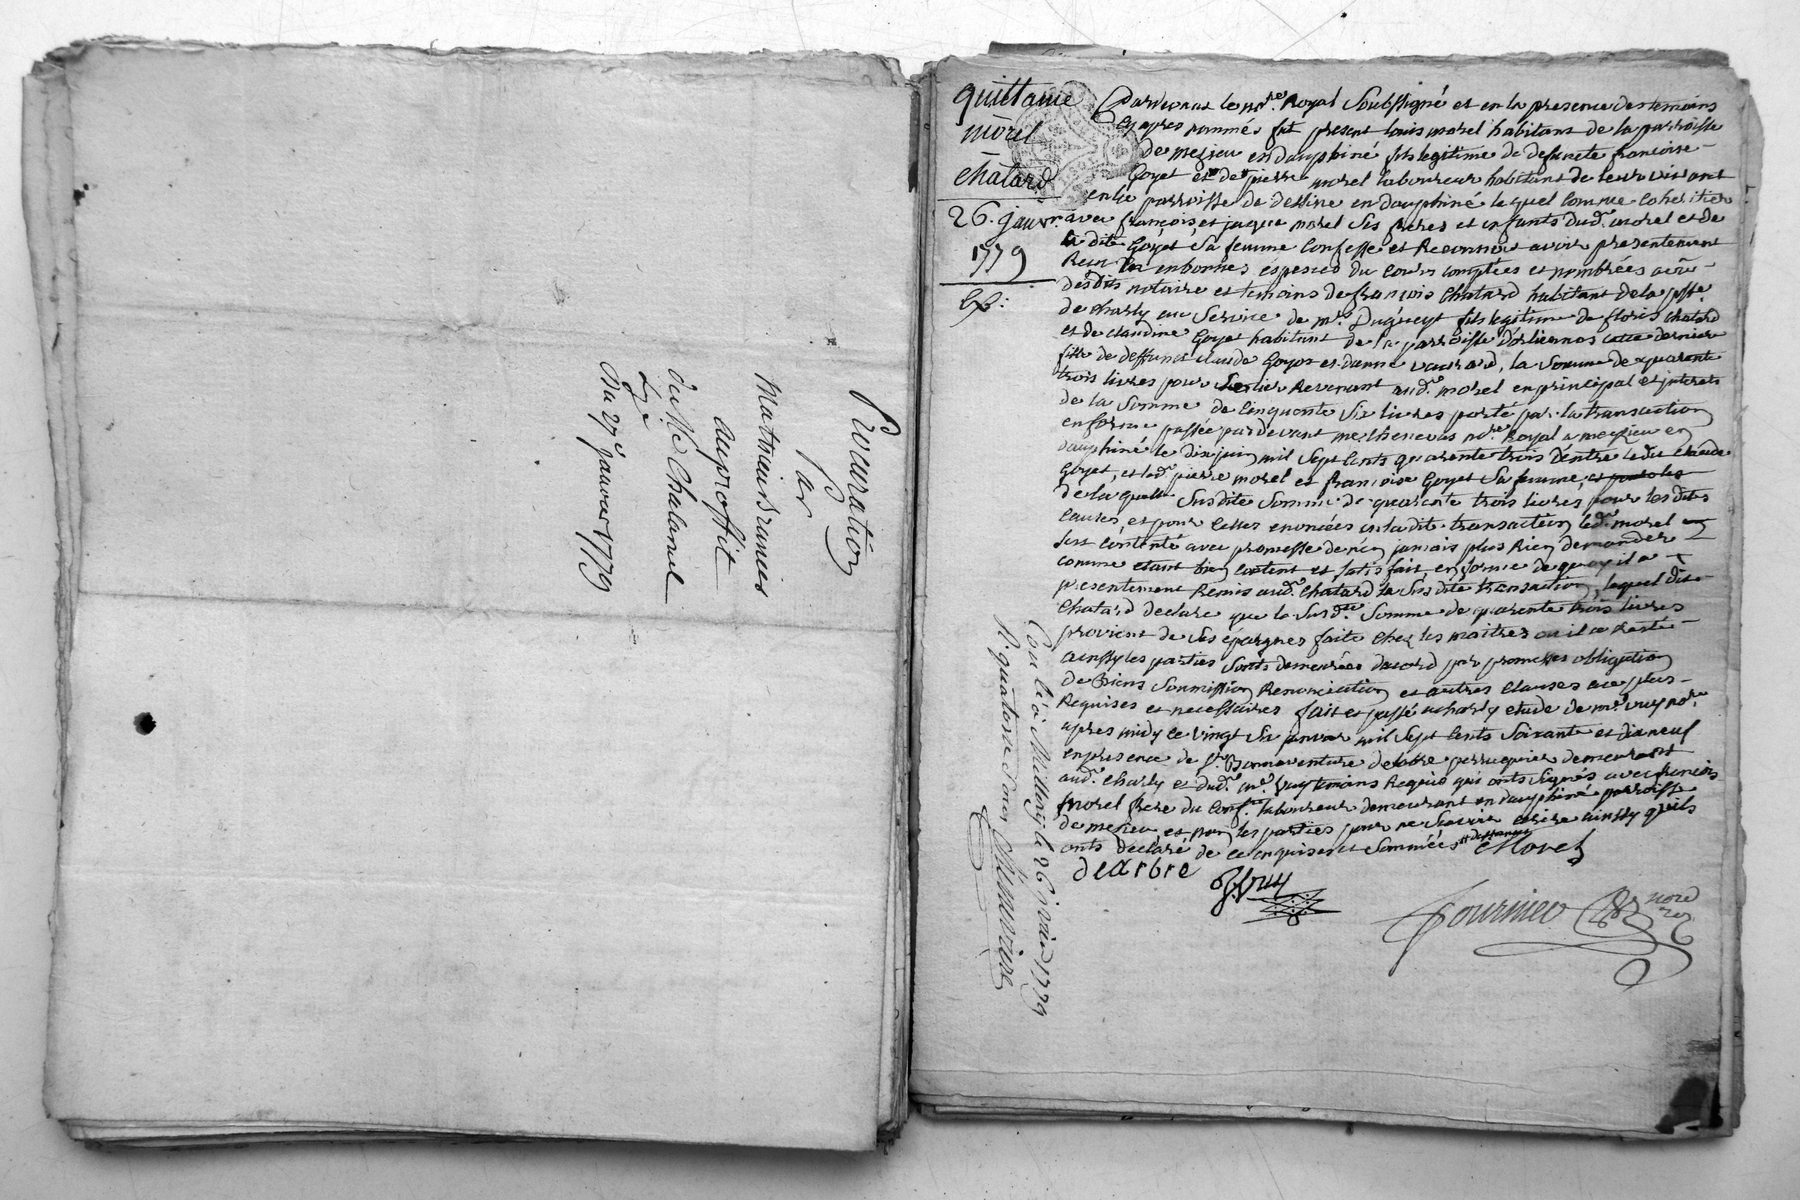 Procuration
Par
Mathieu
au proffit
de Me Chalamel
Du 27e janvier 1779
quittance
morel
chatard
26. janvr.
1779
Pardevant le nore. Royal soussigné et en la presence des temoins
cy apres nommés fut present louis morel habitans de la parroisse
de mezieu en dauphiné fils legitime de defuncte francoise
Goyet et de pierre morel laboureur habitant de leur vivant
en la parroisse de dessine en dauphiné lequel comme coheritier
avec françois et jaque morel ses freres et enfants dud. morel et de
la dite Goyet sa femme confesse et Reconnoit avoir presentement
Reçu en bonnes especes du cours comptées et nombrées
desdits notaire et temoins de françois Chatard habitant de la psse.
de charly au service de mr. Dugueyt fils legitime de floris chatard
et de claudine Goyet habitant de la parroisse d'orlienas cette derniere
fille de deffunct claude Goyet et d'anne la somme de quarante
trois livres pour Revenant aud. morel en principal et interets
de la somme de cinquante six livres porté par la transaction
en forme passée pardevant me thevenas nore. Royal a mezieu en
dauphiné le dix juin mil sept cents quarente trois entre ledit claude
Goyet, et led. pierre morel et francoise Goyet sa femme,
de la quelle susdite somme de quarente trois livres pour les dites
causes, et pour celles enoncées en ladite transaction led. morel
sest contenté avec promesse de n'en jamais plus Rien demander
comme etant bien content et satisfait en forme de quoy il a
presentement Remis aud. chatard la susdite transaction, lequel dit
Chatard declare que la susd. somme de quarente trois livres
provient de ses épargnes faite chez les maitres ou il a resté
ainssy les parties sonts demeurées dacord par promesses obligation
de Biens soumission Renonciation et autres clauses au plus
Requises et necessaires fait et passé a charly etude de me. vuy nore.
apres midy le vingt six janvier mil sept cents soixante et dix neuf
en presence de sr. Bonnaventure delabre perruquier demeurant
aud. charly et dud. me. vuy temoins Requis qui onts signés avec françois
morel frere du conf. laboureur demeurant en dauphiné parroisse
de mezieu, et non les parties pour ne sçavoir ecrire ainssy qu'ils
onts déclaré de ce enquises et sommées
Morel
delarbre
Vuy
Fournier
nore
Coulé à Millery le 26 janvier 1779
R. quatorze sous